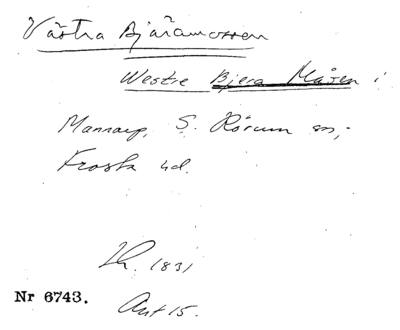 Västra Bjäramossen
Westre Bjera Måsen i
Mannarp, S. Rörum sn,
Frosta hd.
Lh. 1831
Nr 6743.
Akt 15.